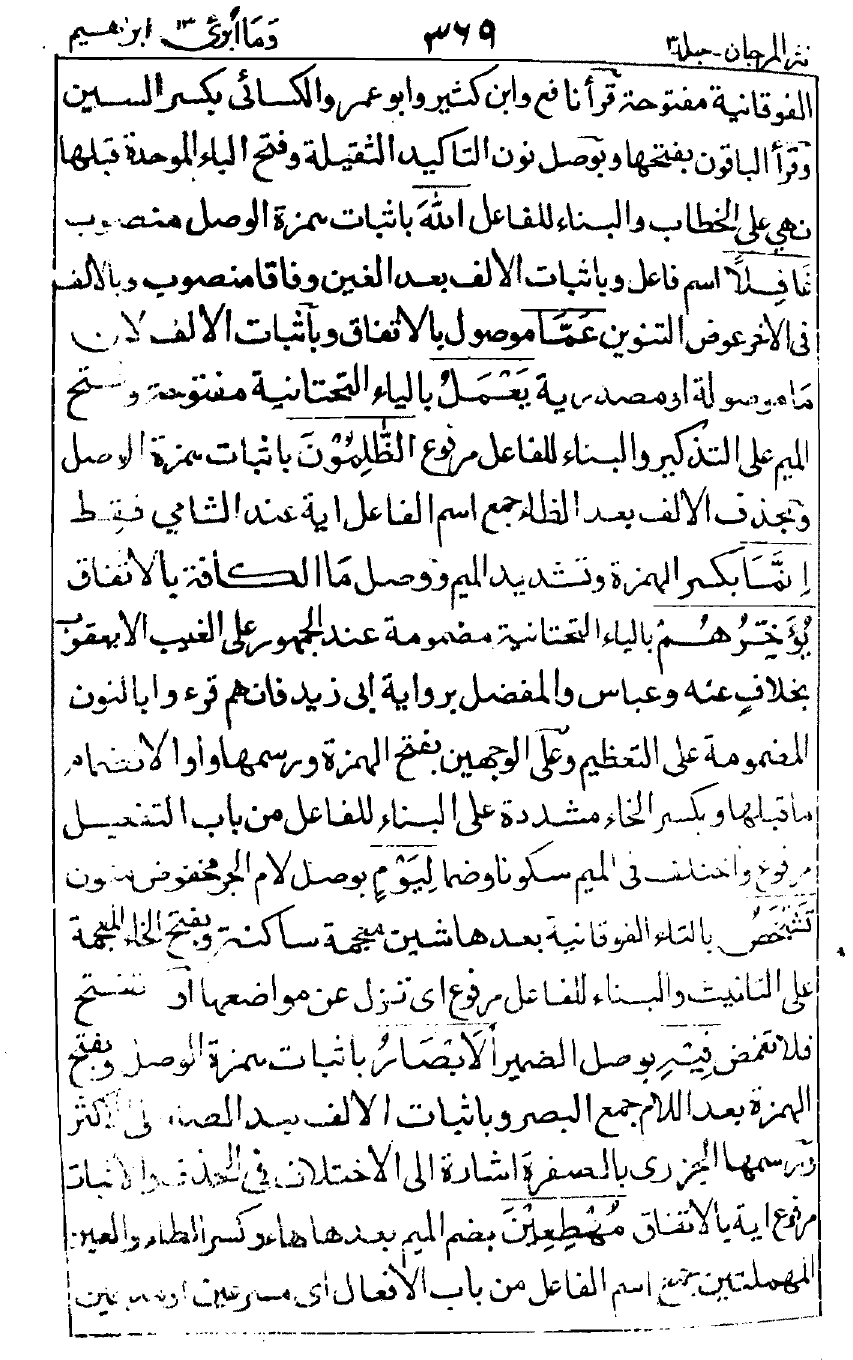 نثر المرجان - جلد ٣ ٣٦٩ وَمَا أُبَرِّئُ ١٣ ابراهيم
الفوقانية مفتوحة قرأ نافع وابن كثير وابو عمر والكسائى بكسر السين
وقرأ الباقون بفتحها وبوصل نون التاكيد الثقيلة وفتح الباء الموحدة قبلها
نهي على الخطاب والبناء للفاعل اللهَ باثبات همزة الوصل منصوب
غَافِلًا اسم فاعل وباثبات الالف بعد الغين وفاقا منصوب وبالالف
فى الاخر عوض التنوين عَمَّا موصول بالاتفاق وباثبات الالف لان
ما موصولة او مصدرية يَعْمَلُ بالياء التحتانية مفتوحة وفتح
الميم على التذكير والبناء للفاعل مرفوع الظّٰلِمُوْنَ باثبات همزة الوصل
وبحذف الالف بعد الظاء جمع اسم الفاعل اية عند الشامي فقط
اِنَّمَا بكسر الهمزة وتشديد الميم ووصل ما الكافة بالاتفاق
يُؤَخِّرُهُمْ بالياء التحتانية مضمومة عند الجمهور على الغيب الا يعقوب
بخلافٍ عنه وعباس والمفضل برواية ابى زيد فانهم قرءوا بالنون
المضمومة على التعظيم وعلى الوجهين بفتح الهمزة ورسمها واوا لانضمام
ما قبلها وبكسر الخاء مشددة على البناء للفاعل من باب التفعيل
مرفوع واختلف فى الميم سكونا وضما لِيَوْمٍ بوصل لام الجر مخفوض منون
تَشْخَصُ بالتاء الفوقانية بعدها شين معجمة ساكنة وبفتح الخاء المعجمة
على التانيث والبناء للفاعل مرفوع اى تنزل عن مواضعها او تنفتح
فلا تغمض فِيْهِ بوصل الضمير اَلْاَبْصَارُ باثبات همزة الوصل وبفتح
الهمزة بعد اللام جمع البصر وباثبات الالف بعد الصاد فى الاكثر
ورسمها الجزرى بالصفرة اشارة الى الاختلاف فى الحذف والاثبات
مرفوع اية بالاتفاق مُهْطِعِيْنَ بضم الميم بعدها هاء وكسر الطاء والعين
المهملتين جمع اسم الفاعل من باب الافعال اى مسرعين